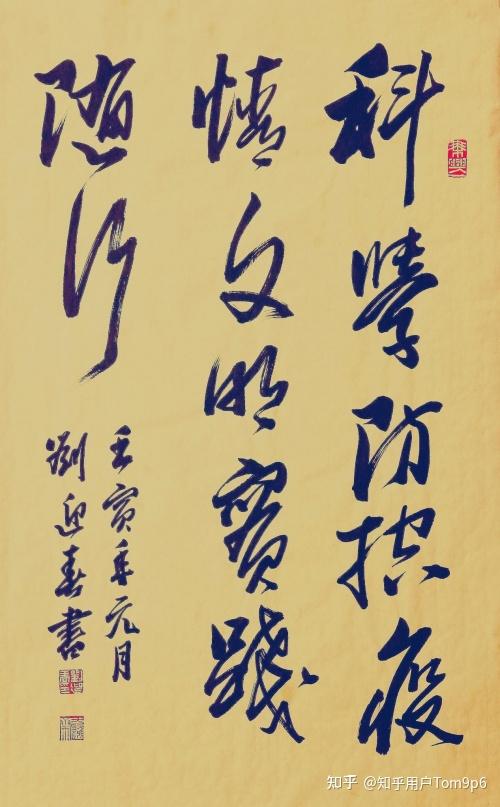 科學防控疫
情文明實踐
隨行
壬寅年元月
劉迎春書
知乎 @知乎用户Tom9p6